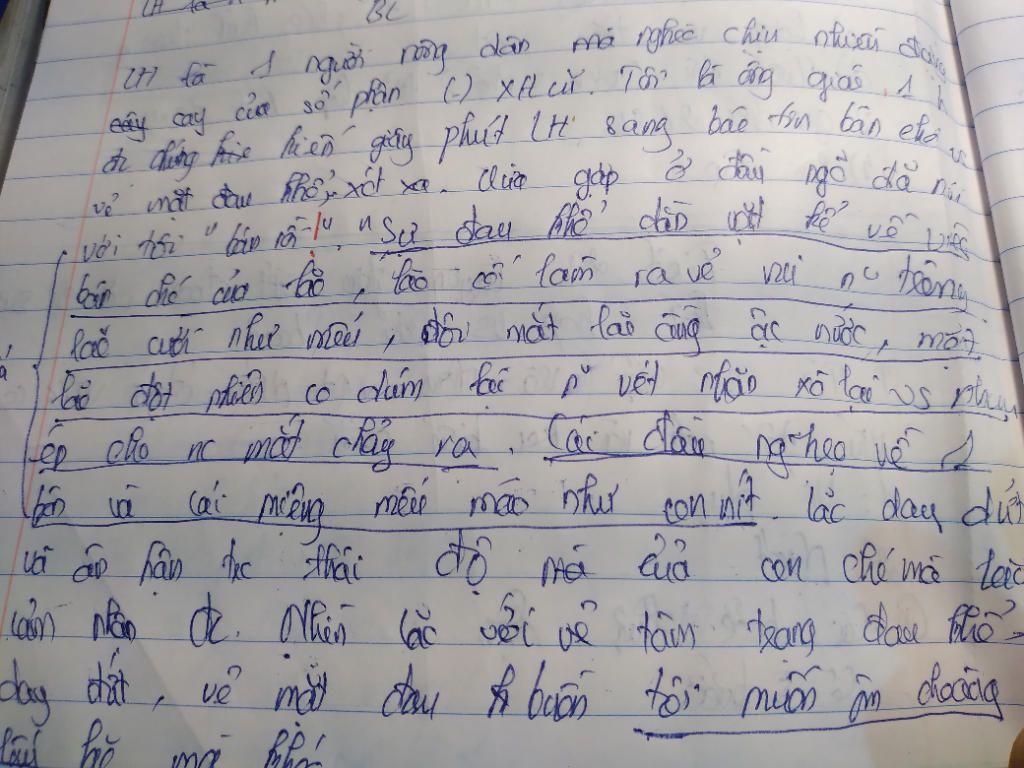 BL
LH là 1 người nông dân mà nghèo chịu nhiều đau
cay của số phận (-) XH cũ. Tôi là ông giáo, 1
đc chứng kiến giây phút LH sang báo tin bán chó
vẻ mặt đau khổ, xót xa. Vừa gặp ở đầu ngõ đã nói
với tôi "bán rồi". "Sự đau khổ dằn vặt kể về việc
bán chó của lão, lão cố làm ra vẻ vui nc trông
lão cười như mếu, đôi mắt lão ầng ậc nước, mặt
lão đột nhiên co dúm lại n~ vết nhăn xô lại vs nhau
ép cho nc mắt chảy ra. Cái đầu nghẹo về 1
bên và cái miệng mếu máo như con nít. lão day dứt
và ân hận tx thái độ mà của con chó mà lão
cảm nhận đc. Nhìn lão với vẻ tâm trạng đau khổ
day dứt, vẻ mặt đau buồn tôi muốn ôm choàng
lấy